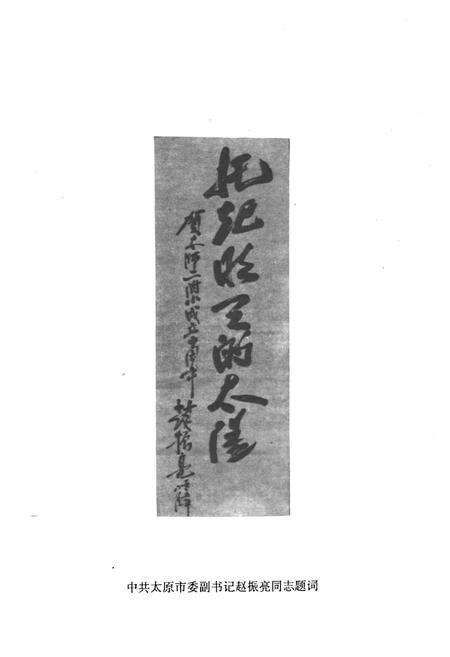 托起明天的太阳
贺太师二附小成立五周年
赵振亮
中共太原市委副书记赵振亮同志题词